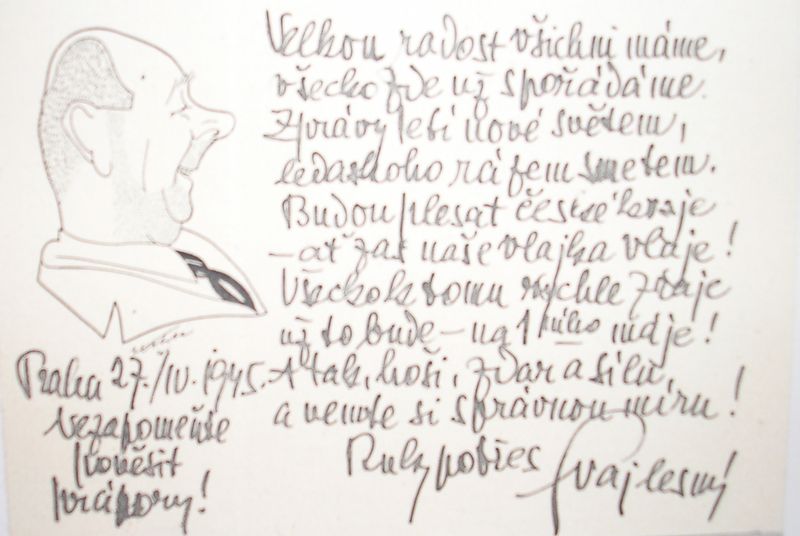 Velkou radost všichni máme,
všecko zde už spořádáme.
Zprávy letí nové světem,
ledaskoho rázem smetem.
Budou plesat české kraje
– ať zas naše vlajka vlaje!
Všecko k tomu rychle zraje
už to bude – na 1 máje!
A tak, hoši, zdar a sílu,
a vemte si správnou míru!
Praha 27./IV. 1945.
Nezapomeňte
pověsit
prápory!